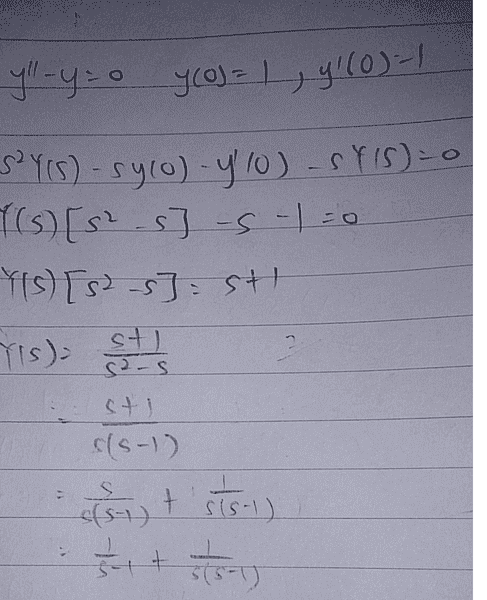 y''-y=0 y(0)=1, y'(0)=1
s²Y(s)-sy(0)-y'(0)-sY(s)=0
Y(s)[s²-s]-s-1=0
Y(s)[s²-s]=s+1
Y(s)= (s+1)/(s²-s) ?
= (s+1)/(s(s-1))
= s/(s(s-1)) + 1/(s(s-1))
= 1/(s-1) + 1/(s(s-1))